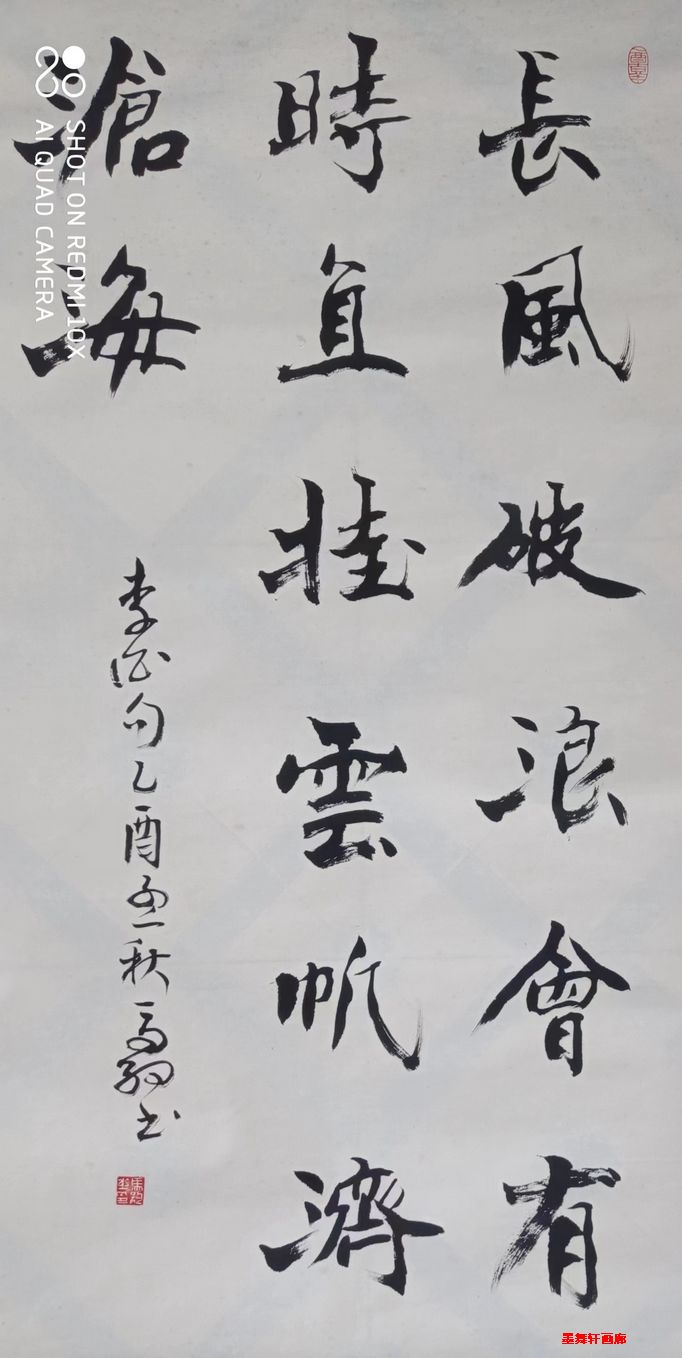 長風破浪會有
時直挂雲帆濟
滄海
李白句乙酉孟秋
SHOT ON REDMI 10X
AI QUAD CAMERA
墨舞轩画廊